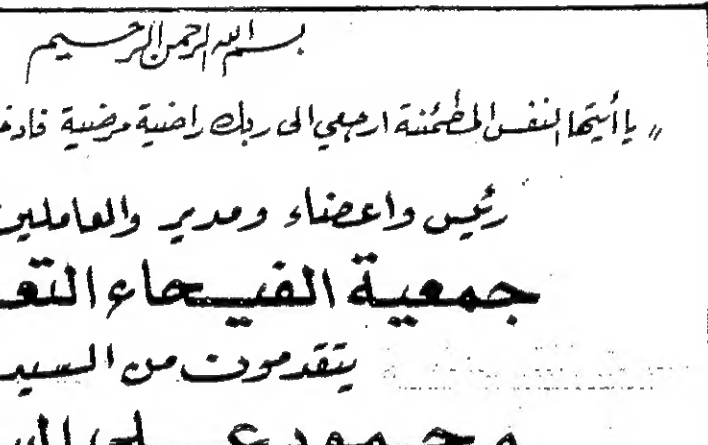 بسم الله الرحمن الرحيم
" يا أيتها النفس المطمئنة ارجعي الى ربك راضية مرضية فادخ
رئيس واعضاء ومدير والعاملين
جمعية الفيحاء التع
يتقدمون من السيد